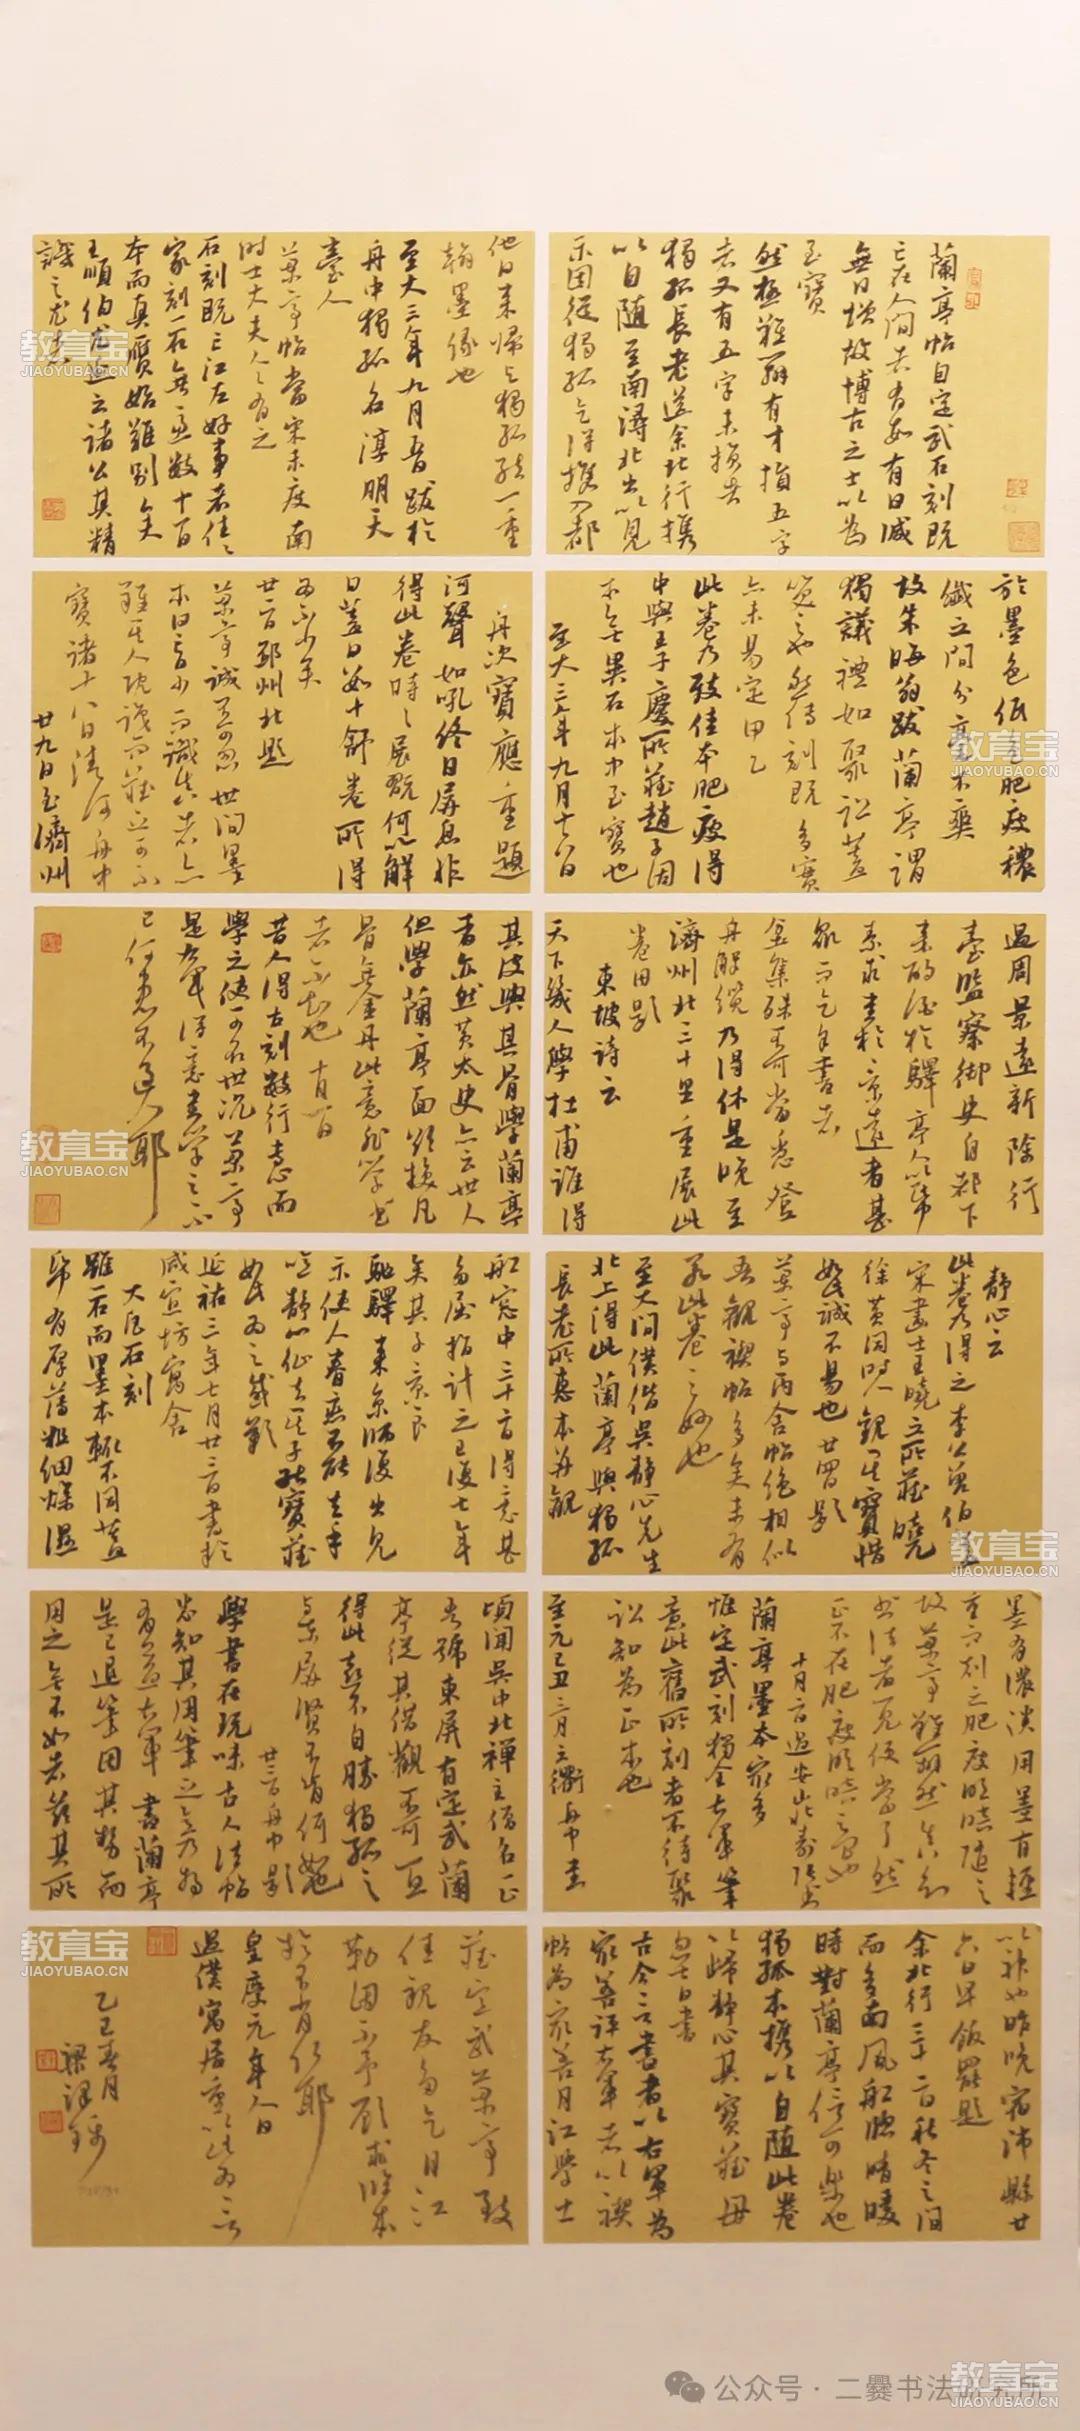 蘭亭帖自定武石刻既
亡在人間者有數有日減
無日增故博古之士以為
至寶
然極難辨有才損五字
者又有五字未損者
獨孤長老送余北行攜
以自隨至南潯北出以見
示因從獨孤乞得攜入都
他日來歸與獨孤結一重
翰墨緣也
至大三年九月五日跋於
舟中獨孤名淳朋天
臺人
蘭亭帖當宋未度南
時士大夫人人有之
石刻既亡江左好事者往往
家刻一石無慮數十百
本而真贋始難別矣
王順伯尤延之諸公其精
識之尤者
於墨色紙色肥瘦穠
纖之間分毫不爽
故朱晦翁跋蘭亭謂
獨議禮如聚訟蓋
笑之也然傳刻既多實
亦未易定甲乙
此卷乃致佳本肥瘦得
中與王子慶所藏趙子固
本無異石本中至寶也
至大三年九月十六日
舟次寶應重題
河聲如吼終日屏息非
得此卷時時展玩何以解
日蓋日數十舒卷所得
為不少矣
廿二日邳州北題
蘭亭誠不可忽世間墨
本日亡日少而識真者益
難其人既識而藏之可不
寶諸十八日清河舟中
廿九日至濟州
過周景遠新除行
臺監察御史自都下
來酌酒於驛亭人以紙
素求書於景遠者甚
衆而乞余書者
坌集殊不可當急登
舟解纜乃得休是晚至
濟州北三十里重展此
卷因題
東坡詩云
天下幾人學杜甫誰得
其皮與其骨學蘭亭
者亦然黃太史亦云世人
但學蘭亭面欲換凡
骨無金丹此意非學書
者不知也 十月一日
昔人得古刻數行專心而
學之便可名世況蘭亭
是右軍得意書學之不
已何患不過人耶
靜心云
此卷乃得之李公曾伯蓋
宋畫士王曉之所藏曉
徐黃同時人觀其寶惜
如此誠不易也 廿四日題
蘭亭與丙舍帖絕相似
吾觀禊帖多矣未有
若此卷之妙也
至大間僕偕吳靜心先生
北上得此蘭亭與獨孤
長老所惠本並觀
船窗中三十二日得意甚
多屈指計之已復七年
矣其子景良
馳驛來京師復出見
示使人眷戀不能去手
噫靜心仙去其子能寶藏
如此為之感歎
延祐三年七月廿三日書於
咸宜坊寓舍
大凡石刻
雖一石而墨本輒不同蓋
紙有厚薄粗細燥濕
墨有濃淡用墨有輕
重而刻之肥瘦明暗隨之
故蘭亭難辨然真知
書法者一見便當了然
正不在肥瘦明暗之間也
十月二日過安山北壽張書
蘭亭墨本最多
惟定武刻獨全右軍筆
意此舊所刻者不待聚
訟知為正本也
至元己丑三月三衢舟中書
頃聞吳中北禪主僧名正
吾號東屏有定武蘭
亭從其借觀不可一旦
得此喜不自勝獨孤之
與東屏賢不肖何如也
廿三日舟中題
學書在玩味古人法帖
悉知其用筆之意乃為
有益右軍書蘭亭
是已退筆因其勢而
用之無不如志茲其所
以神也昨晚宿沛縣廿
六日早飯罷題
余北行三十二日秋冬之間
而多南風船窗晴暖
時對蘭亭信可樂也
獨孤本攜以自隨此卷
以歸靜心其寶藏毋
忽七日書
古今言書者以右軍為
最善評右軍者以禊
帖為最善月江學士
藏定武蘭亭致
佳親友多乞月江
勒石不予顧求臨本
於不肖何耶
皇慶元年人日
過僕寓居重以此為言
乙巳春月
梁
教育宝
JIAOYUBAO.CN
教育宝
JIAOYUBAO.CN
教育宝
JIAOYUBAO.CN
教育宝
JIAOYUBAO.CN
教育宝
JIAOYUBAO.CN
教育宝
JIAOYUBAO.CN
公众号·二爨书法研究所